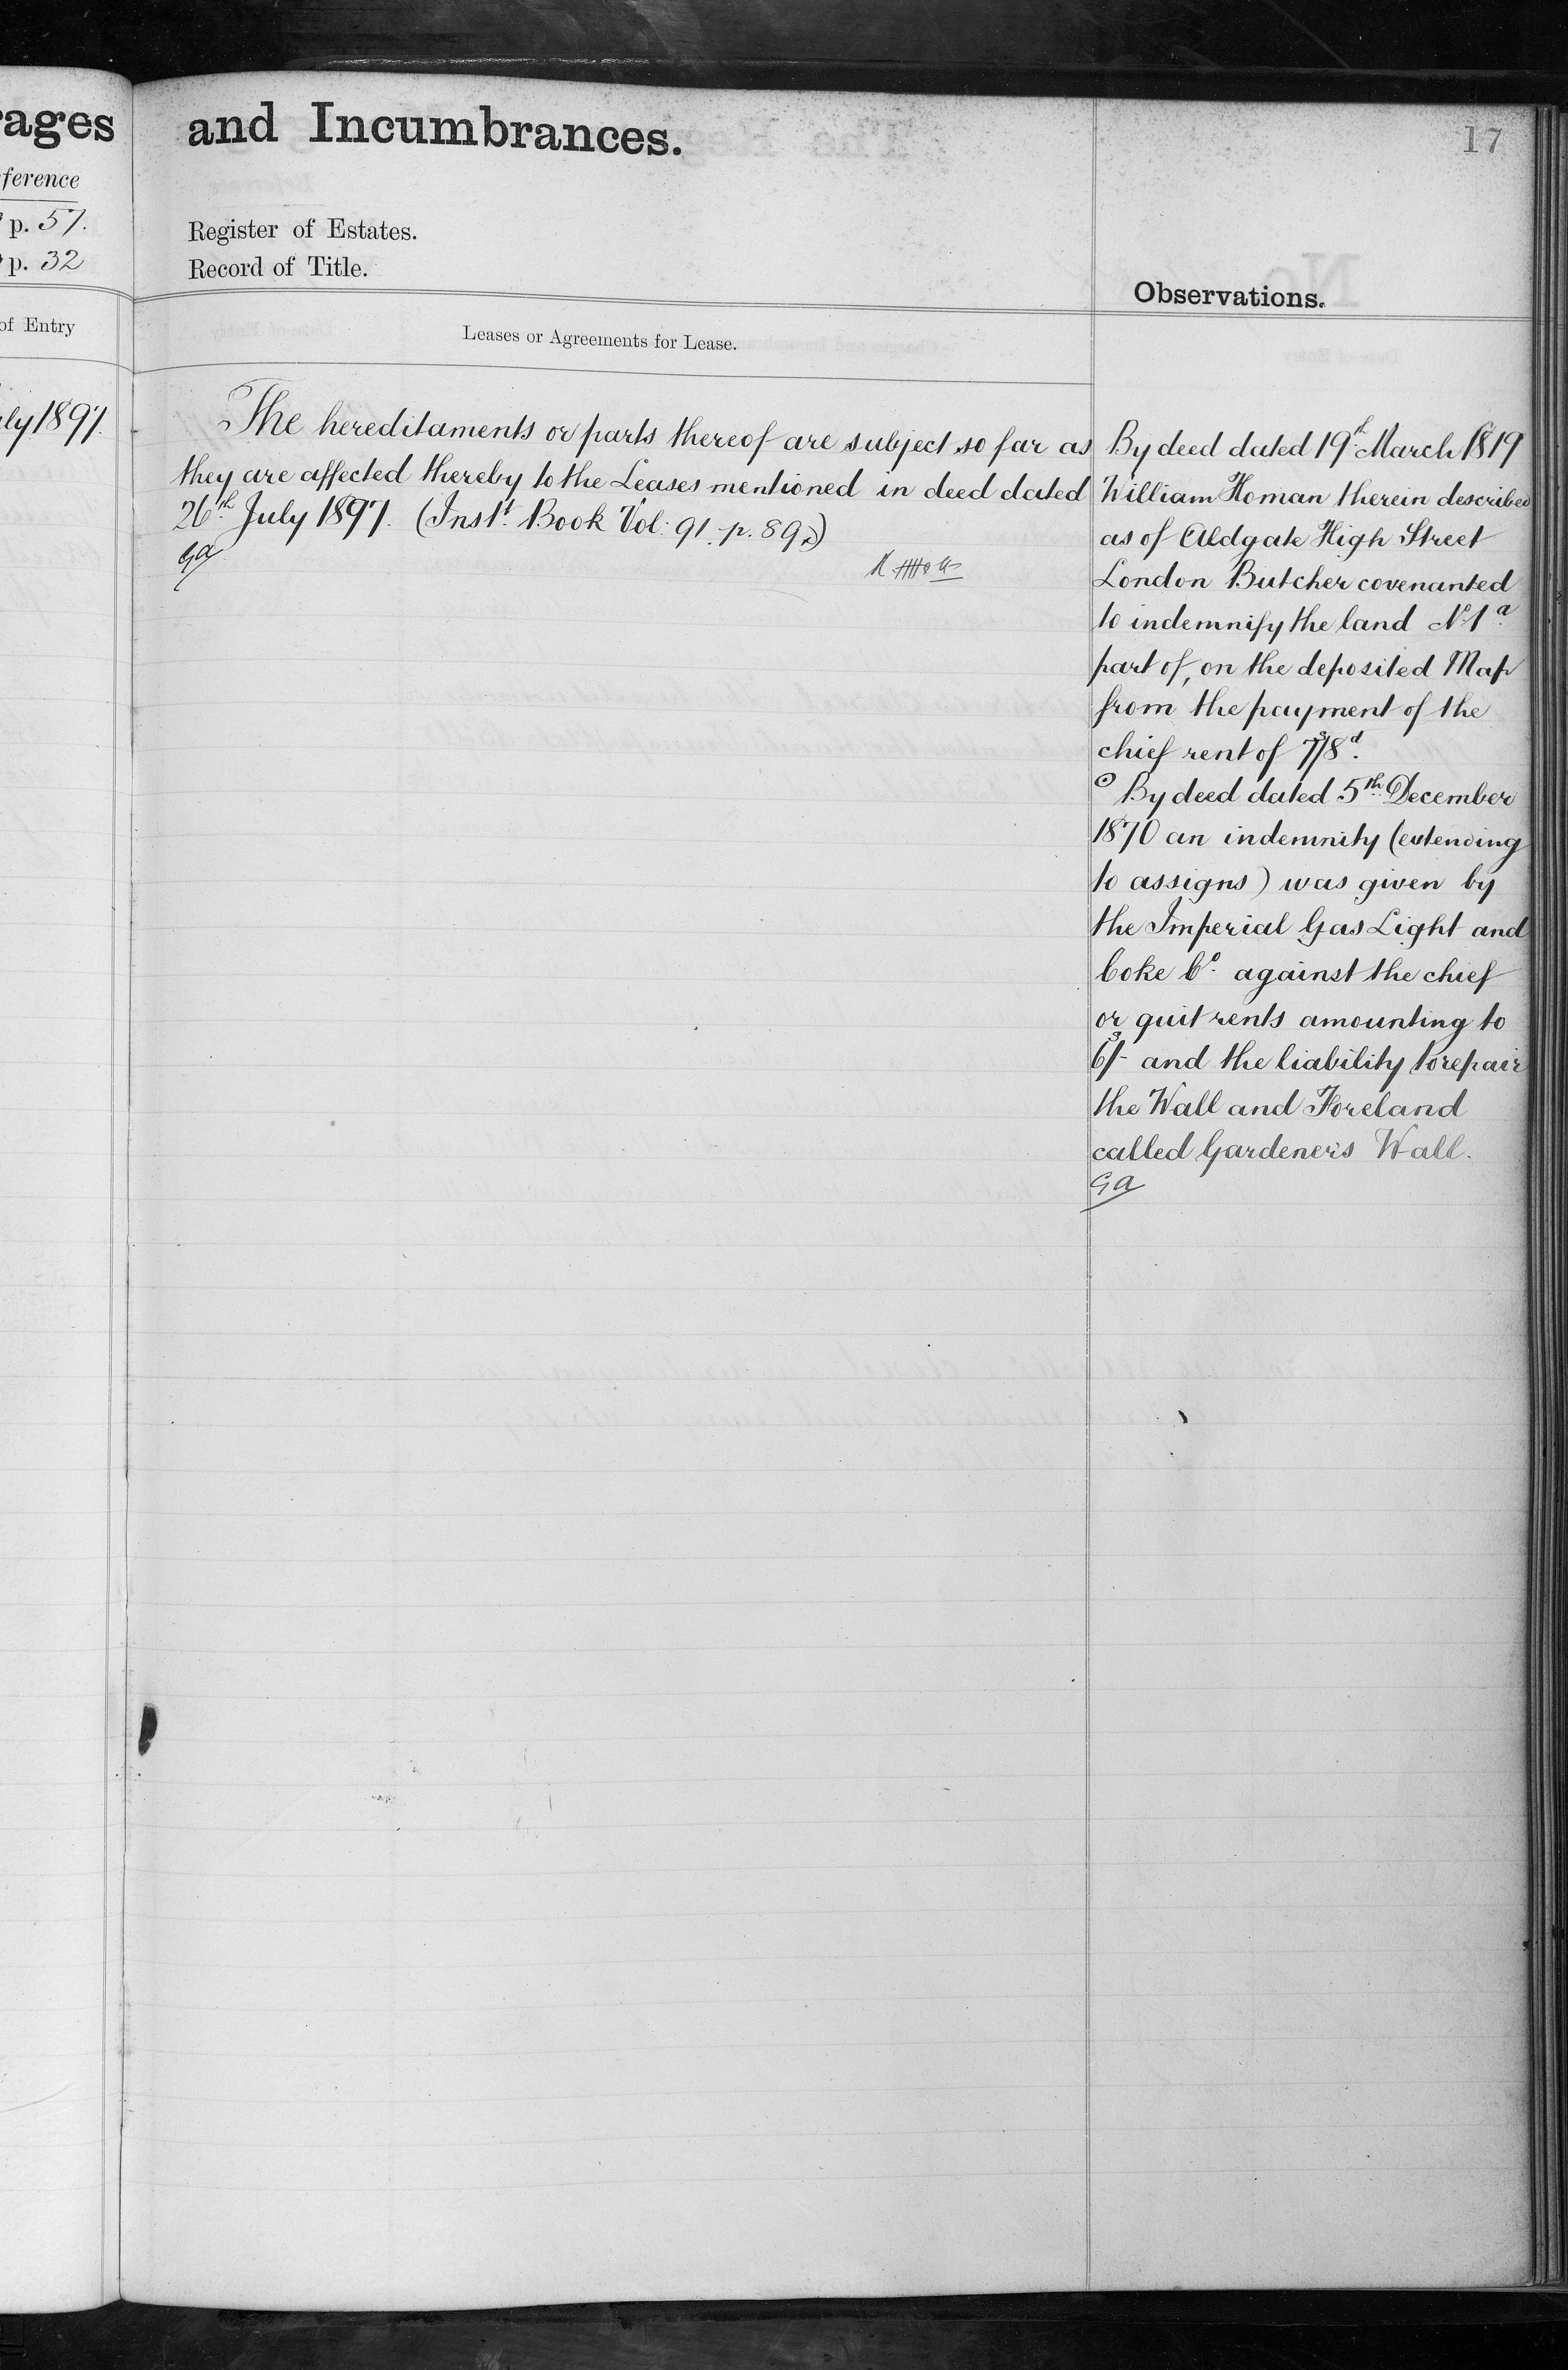 rages
ference
p. 57.
p. 32
of Entry
uly 1897.
and Incumbrances.
17
Register of Estates.
Record of Title.
Observations.
Leases or Agreements for Lease.
The hereditaments or parts thereof are subject so far as
they are affected thereby to the Leases mentioned in deed dated
26th July 1897. (Inst. Book Vol: 91. p. 89.)
GA
By deed dated 19th March 1819
William Homan therein described
as of Aldgate High Street
London Butcher covenanted
to indemnify the land No. 1a
part of, on the deposited Map
from the payment of the
chief rent of 7s/8d.
By deed dated 5th December
1870 an indemnity (extending
to assigns) was given by
the Imperial Gas Light and
Coke Co. against the chief
or quit rents amounting to
6s/- and the liability to repair
the Wall and Foreland
called Gardeners Wall.
GA